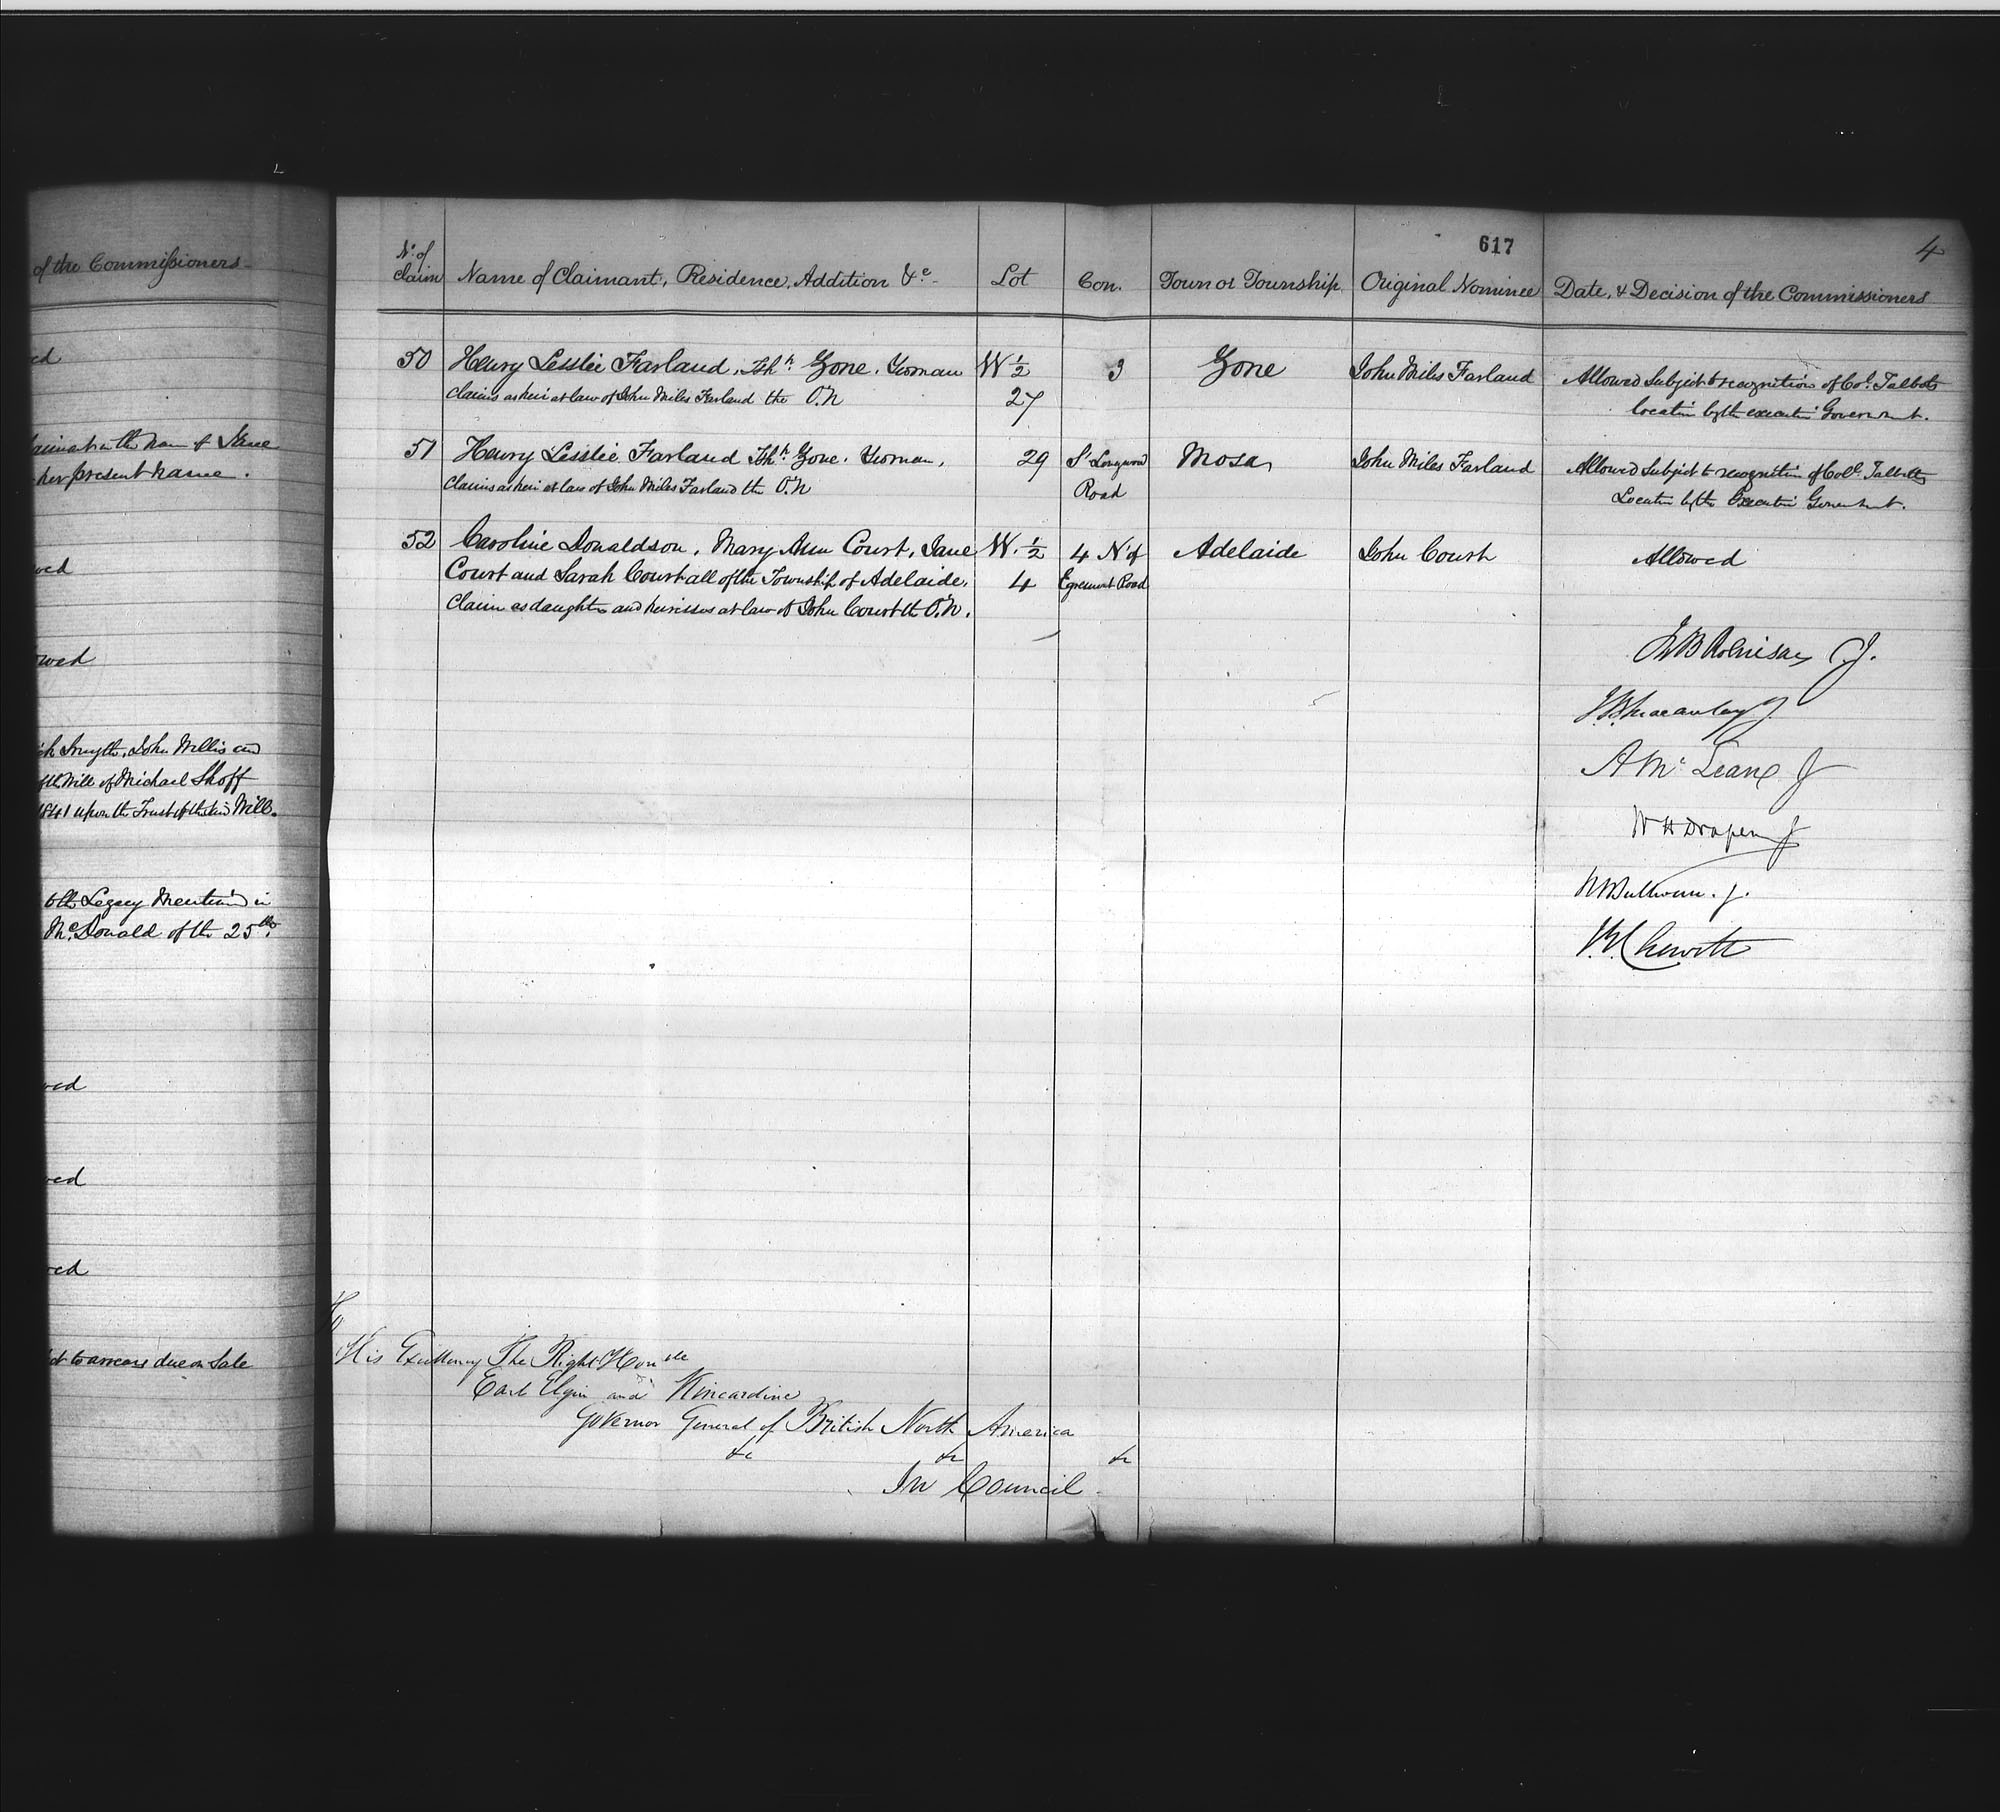 of the Commissioners
ed
her present name.
wed
owed
Smyth, John Willis and
of the Will of Michael Shoff
1841 upon the Trust of the said Will.
to the Legacy Mentioned in
McDonald of the 25th
wed
wed
wed
to arrears due on Sale
617
4
No. of claim Name of Claimant, Residence, Addition &c. Lot Con. Town or Township Original Nominee Date, & Decision of the Commissioners
50 Henry Lesslie Farland, Tsh.p Zone. Yeoman W 1/2 3 Zone John Miles Farland Allowed Subject to recognition of Col. Talbots
claims as heir at law of John Miles Farland the O.N 27 location by the executive Government.
51 Henry Lesslie Farland Tsh.p Zone. Yeoman, 29 S Longwood Mosa John Miles Farland Allowed Subject to recognition of Coll. Talbotts
Claims as heir at law of John Miles Farland the O.N Road Location by the Executive Government.
52 Caroline Donaldson, Mary Ann Court, Jane W. 1/2 4 N of Adelaide John Court Allowed
Court and Sarah Court all of the Township of Adelaide, 4 Egremont Road
Claim as daughters and heiresses at law of John Court the O.N.
Jno B Robinson C.J.
J.B. Macaulay J.
A McLean J
W H Draper J
R B Sullivan. J.
J.G. Chewett
To
His Excellency The Right Honble
Earl Elgin and Kincardine
Governor General of British North America
&c &c &c
In Council.